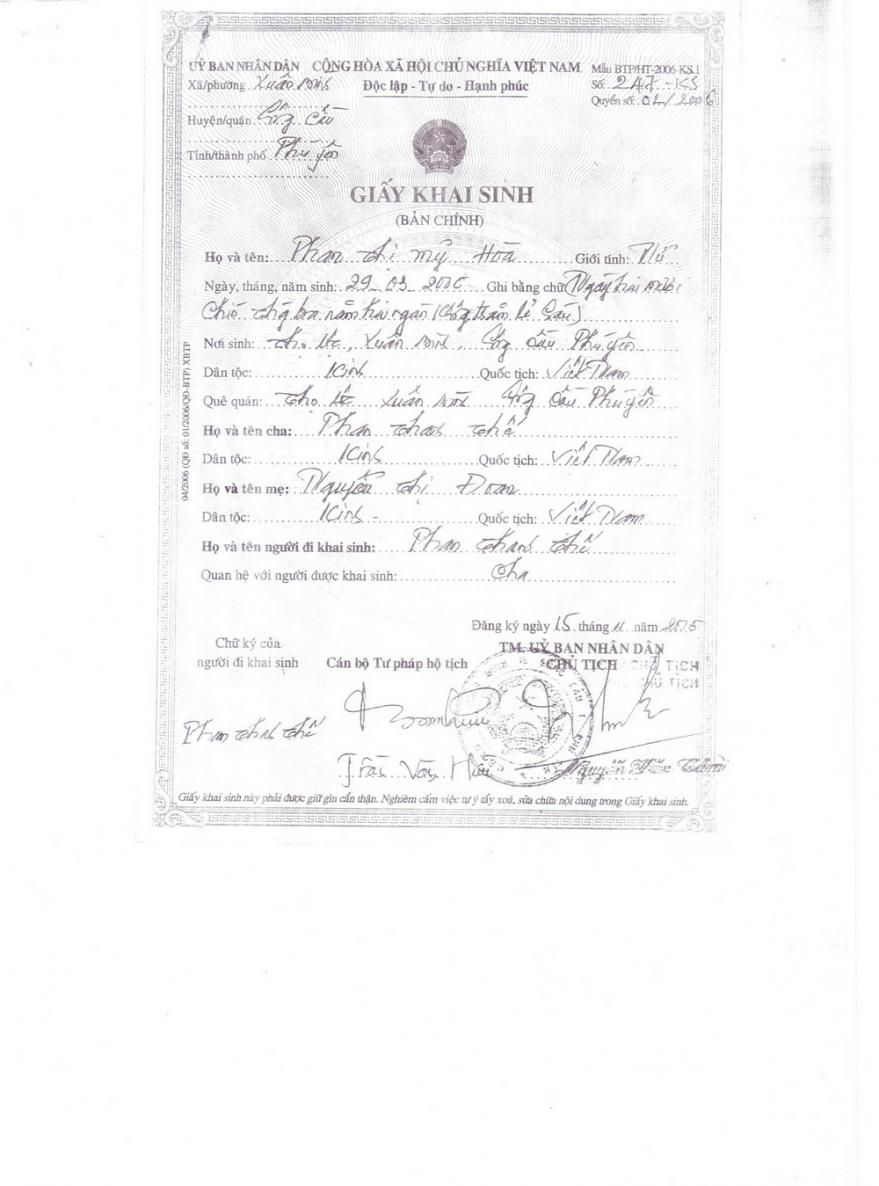 UỶ BAN NHÂN DÂN CỘNG HÒA XÃ HỘI CHỦ NGHĨA VIỆT NAM Mẫu BTP/HT-2006-KS.1
Xã/phường: Xuân Độc lập - Tự do - Hạnh phúc Số: 247-KS
Quyển số: 01/2006
Huyện/quận: Sông Cầu
Tỉnh/thành phố: Phú Yên
GIẤY KHAI SINH
(BẢN CHÍNH)
Họ và tên: Phan thị mỹ Hoà Giới tính: Nữ
Ngày, tháng, năm sinh: 29 03 2006 Ghi bằng chữ Ngày hai mươi
Chín tháng ba năm hai ngàn không trăm lẻ Sáu
Nơi sinh: thọ lộc, Xuân Sông Cầu Phú Yên
Dân tộc: Kinh Quốc tịch: Việt Nam
Quê quán: thọ lộc Xuân Sông Cầu Phú Yên
Họ và tên cha: Phan
Dân tộc: Kinh Quốc tịch: Việt Nam
Họ và tên mẹ: Nguyễn thị Đoan
Dân tộc: Kinh - Quốc tịch: Việt Nam
Họ và tên người đi khai sinh: Phan
Quan hệ với người được khai sinh: Cha
04/2006 (QĐ số: 01/2006/QĐ-BTP) XBTP
Đăng ký ngày 15 tháng 11 năm
Chữ ký của
người đi khai sinh
Cán bộ Tư pháp hộ tịch
TM. UỶ BAN NHÂN DÂN
CHỦ TỊCH CHỦ TỊCH
CHỦ TỊCH
Phan
Trần Văn
Nguyễn
Giấy khai sinh này phải được giữ gìn cẩn thận. Nghiêm cấm việc tự ý tẩy xoá, sửa chữa nội dung trong Giấy khai sinh.